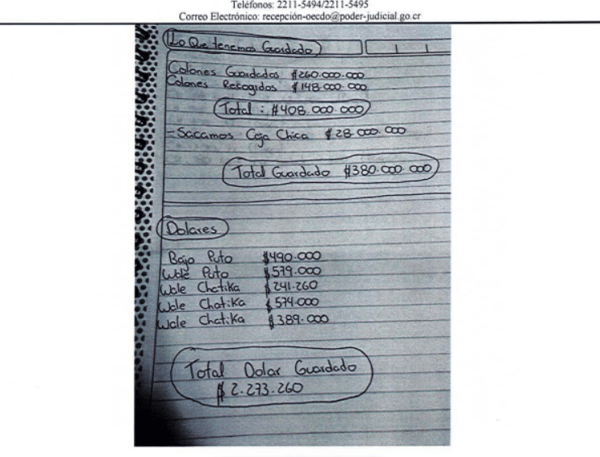 Teléfonos: 2211-5494/2211-5495
Correo Electrónico: recepción-oecdo@poder-judicial.go.cr
Lo Que tenemos Guardado
Colones Guardados ₡260.000.000
Colones Recogidos ₡148 000 000
Total : ₡408.000.000
- Sacamos Caja Chica ₡28 000.000
Total Guardado ₡380.000 000
Dolares
Bajo Puto $490.000
Wale Puto $579.000
Wale Chatika $241.260
Wale Chatika $574.000
Wale Chatika $389.000
Total Dolar Guardado
$2.273.260